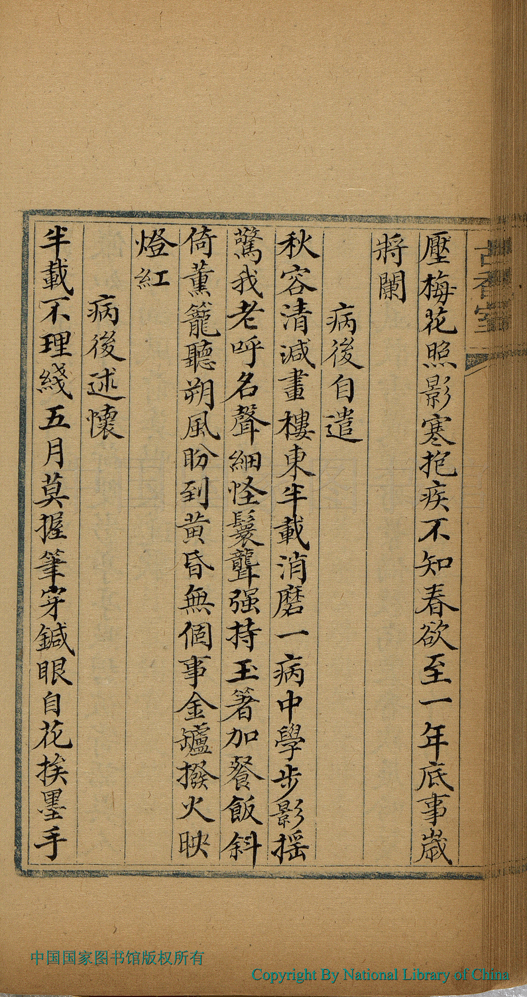 古香室
壓梅花照影寒抱疾不知春欲至一年底事歲
將闌
病後自遣
秋容清減畫樓東半載消磨一病中學步影搖
驚我老呼名聲細怪鬟聾强持玉箸加餐飯斜
倚薰籠聽朔風盼到黃昏無個事金鑪撥火映
燈紅
病後述懷
半載不理綫五月莫握筆穿鍼眼自花挨墨手
中国国家图书馆版权所有
Copyright By National Library of China